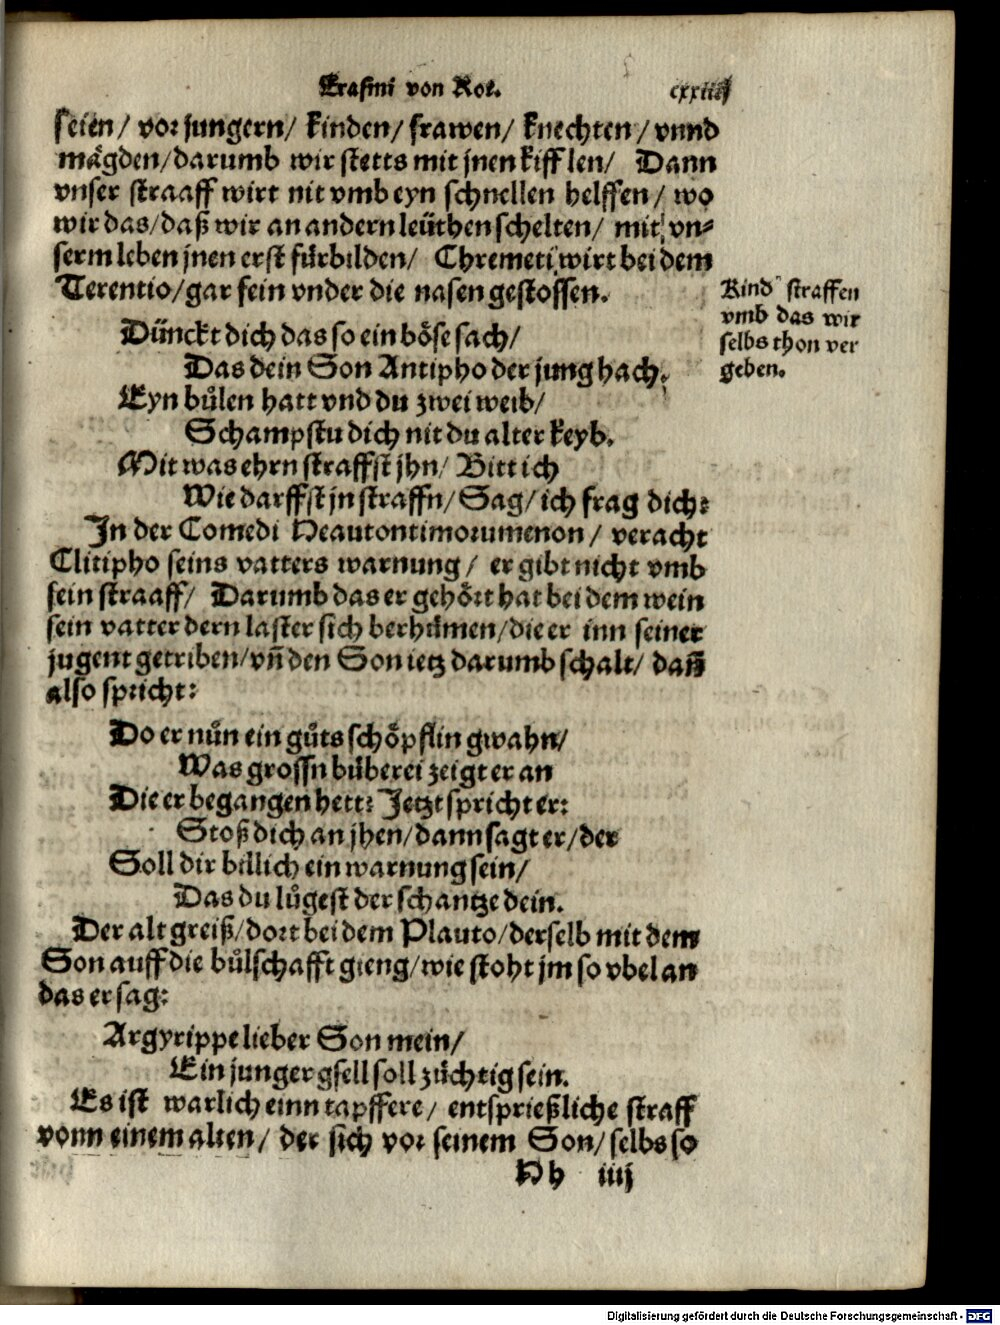 Erasmi von Rot. cxxiiij
seien/ vor jungern/ kinden/ frawen/ knechten/ vnnd
mägden/ darumb wir stetts mit jnen kifflen/ Dann
vnser straaff wirt nit vmb eyn schnellen helffen/ wo
wir das/ daß wir an andern leüthen schelten/ mit vn⸗
serm leben jnen erst fürbilden/ Chremeti wirt bei dem
Terentio/ gar fein vnder die nasen gestossen.
Kind straffen
vmb das wir
selbs thon ver
geben.
Dünckt dich das so ein böse sach/
Das dein Son Antipho der jung hach.
Eyn bůlen hatt vnd du zwei weib/
Schampstu dich nit du alter keyb.
Mit was ehrn straffst jhn/ Bitt ich
Wie darffst jn straffn/ Sag/ ich frag dich:
In der Comedi Heautontimorumenon/ veracht
Clitipho seins vatters warnung/ er gibt nicht vmb
sein straaff/ Darumb das er gehört hat bei dem wein
sein vatter dern laster sich berhümen/ die er inn seiner
jugent getriben/ vñ den Son ietz darumb schalt/ dañ
also spricht:
Do er nůn ein gůts schöpflin gwahn/
Was grossn büberei zeigt er an
Die er begangen hett: Jetzt spricht er:
Stoß dich an jhen/ dann sagt er/ der
Soll dir billich ein warnung sein/
Das du lůgest der schantze dein.
Der alt greiß/ dort bei dem Plauto/ derselb mit dem
Son auff die bůlschafft gieng/ wie stoht jm so vbel an
das er sag:
Argyrippe lieber Son mein/
Ein junger gsell soll züchtig sein.
Es ist warlich einn tapffere/ entsprießliche straff
vonn einem alten/ der sich vor seinem Son/ selbs so
Hh iiij
Digitalisierung gefördert durch die Deutsche Forschungsgemeinschaft - DFG